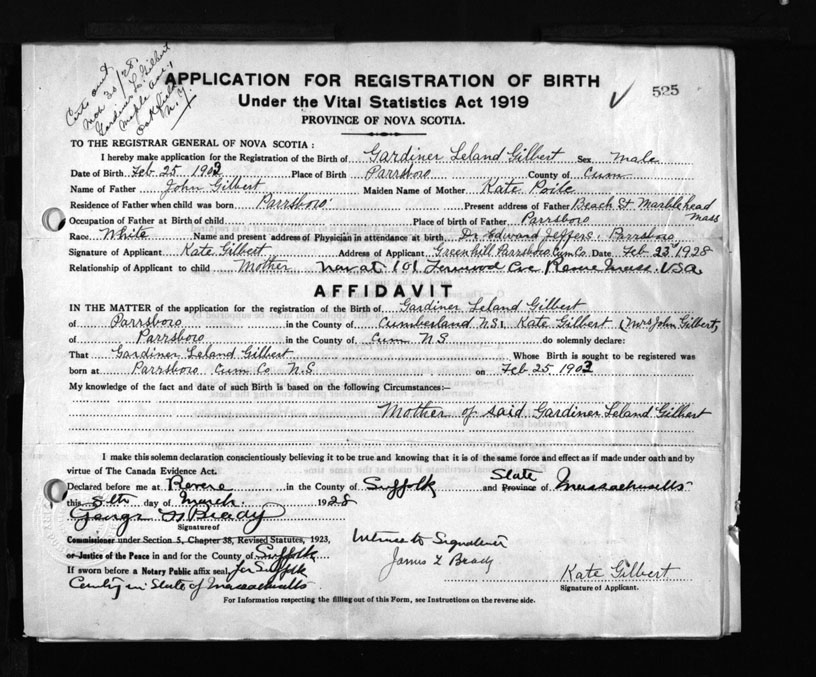 Cert. sent
Mch 30/28.
Gardiner L. Gilbert
Maple Ave.,
Oakfield
N.Y.
APPLICATION FOR REGISTRATION OF BIRTH
✓ 525
Under the Vital Statistics Act 1919
PROVINCE OF NOVA SCOTIA.
TO THE REGISTRAR GENERAL OF NOVA SCOTIA :
I hereby make application for the Registration of the Birth of Gardiner Leland Gilbert Sex Male
Date of Birth Feb 25 1903 Place of Birth Parrsboro County of Cum.
Name of Father John Gilbert Maiden Name of Mother Kate Poile
Residence of Father when child was born Parrsboro Present address of Father Beach St Marblehead Mass
Occupation of Father at Birth of child Place of birth of Father Parrsboro
Race White Name and present address of Physician in attendance at birth Dr Edward Jeffers. Parrsboro
Signature of Applicant Kate Gilbert Address of Applicant Greenhill Parrsboro Cum Co Date Feb 23rd 1928
Relationship of Applicant to child Mother Now at 101 Ave Revere Mass. U.S.A.
AFFIDAVIT
IN THE MATTER of the application for the registration of the Birth of Gardiner Leland Gilbert
of Parrsboro in the County of Cumberland N.S. I, Kate Gilbert (Mrs John Gilbert)
of Parrsboro in the County of Cum N.S. do solemnly declare:
That Gardiner Leland Gilbert Whose Birth is sought to be registered was
born at Parrsboro Cum Co N.S on Feb 25 1903
My knowledge of the fact and date of such Birth is based on the following Circumstances:—
Mother of said Gardiner Leland Gilbert
I make this solemn declaration conscientiously believing it to be true and knowing that it is of the same force and effect as if made under oath and by
virtue of The Canada Evidence Act.
Declared before me at Revere in the County of Suffolk and Province of State Massachusetts
this 8th day of March 1928
George Brady
Signature of
Commissioner under Section 5, Chapter 38, Revised Statutes, 1923,
or Justice of the Peace in and for the County of Suffolk
If sworn before a Notary Public affix seal, for Suffolk
County in State of Massachusetts
Witness to Signature
James L Brady
Kate Gilbert
Signature of Applicant.
For Information respecting the filling out of this Form, see Instructions on the reverse side.